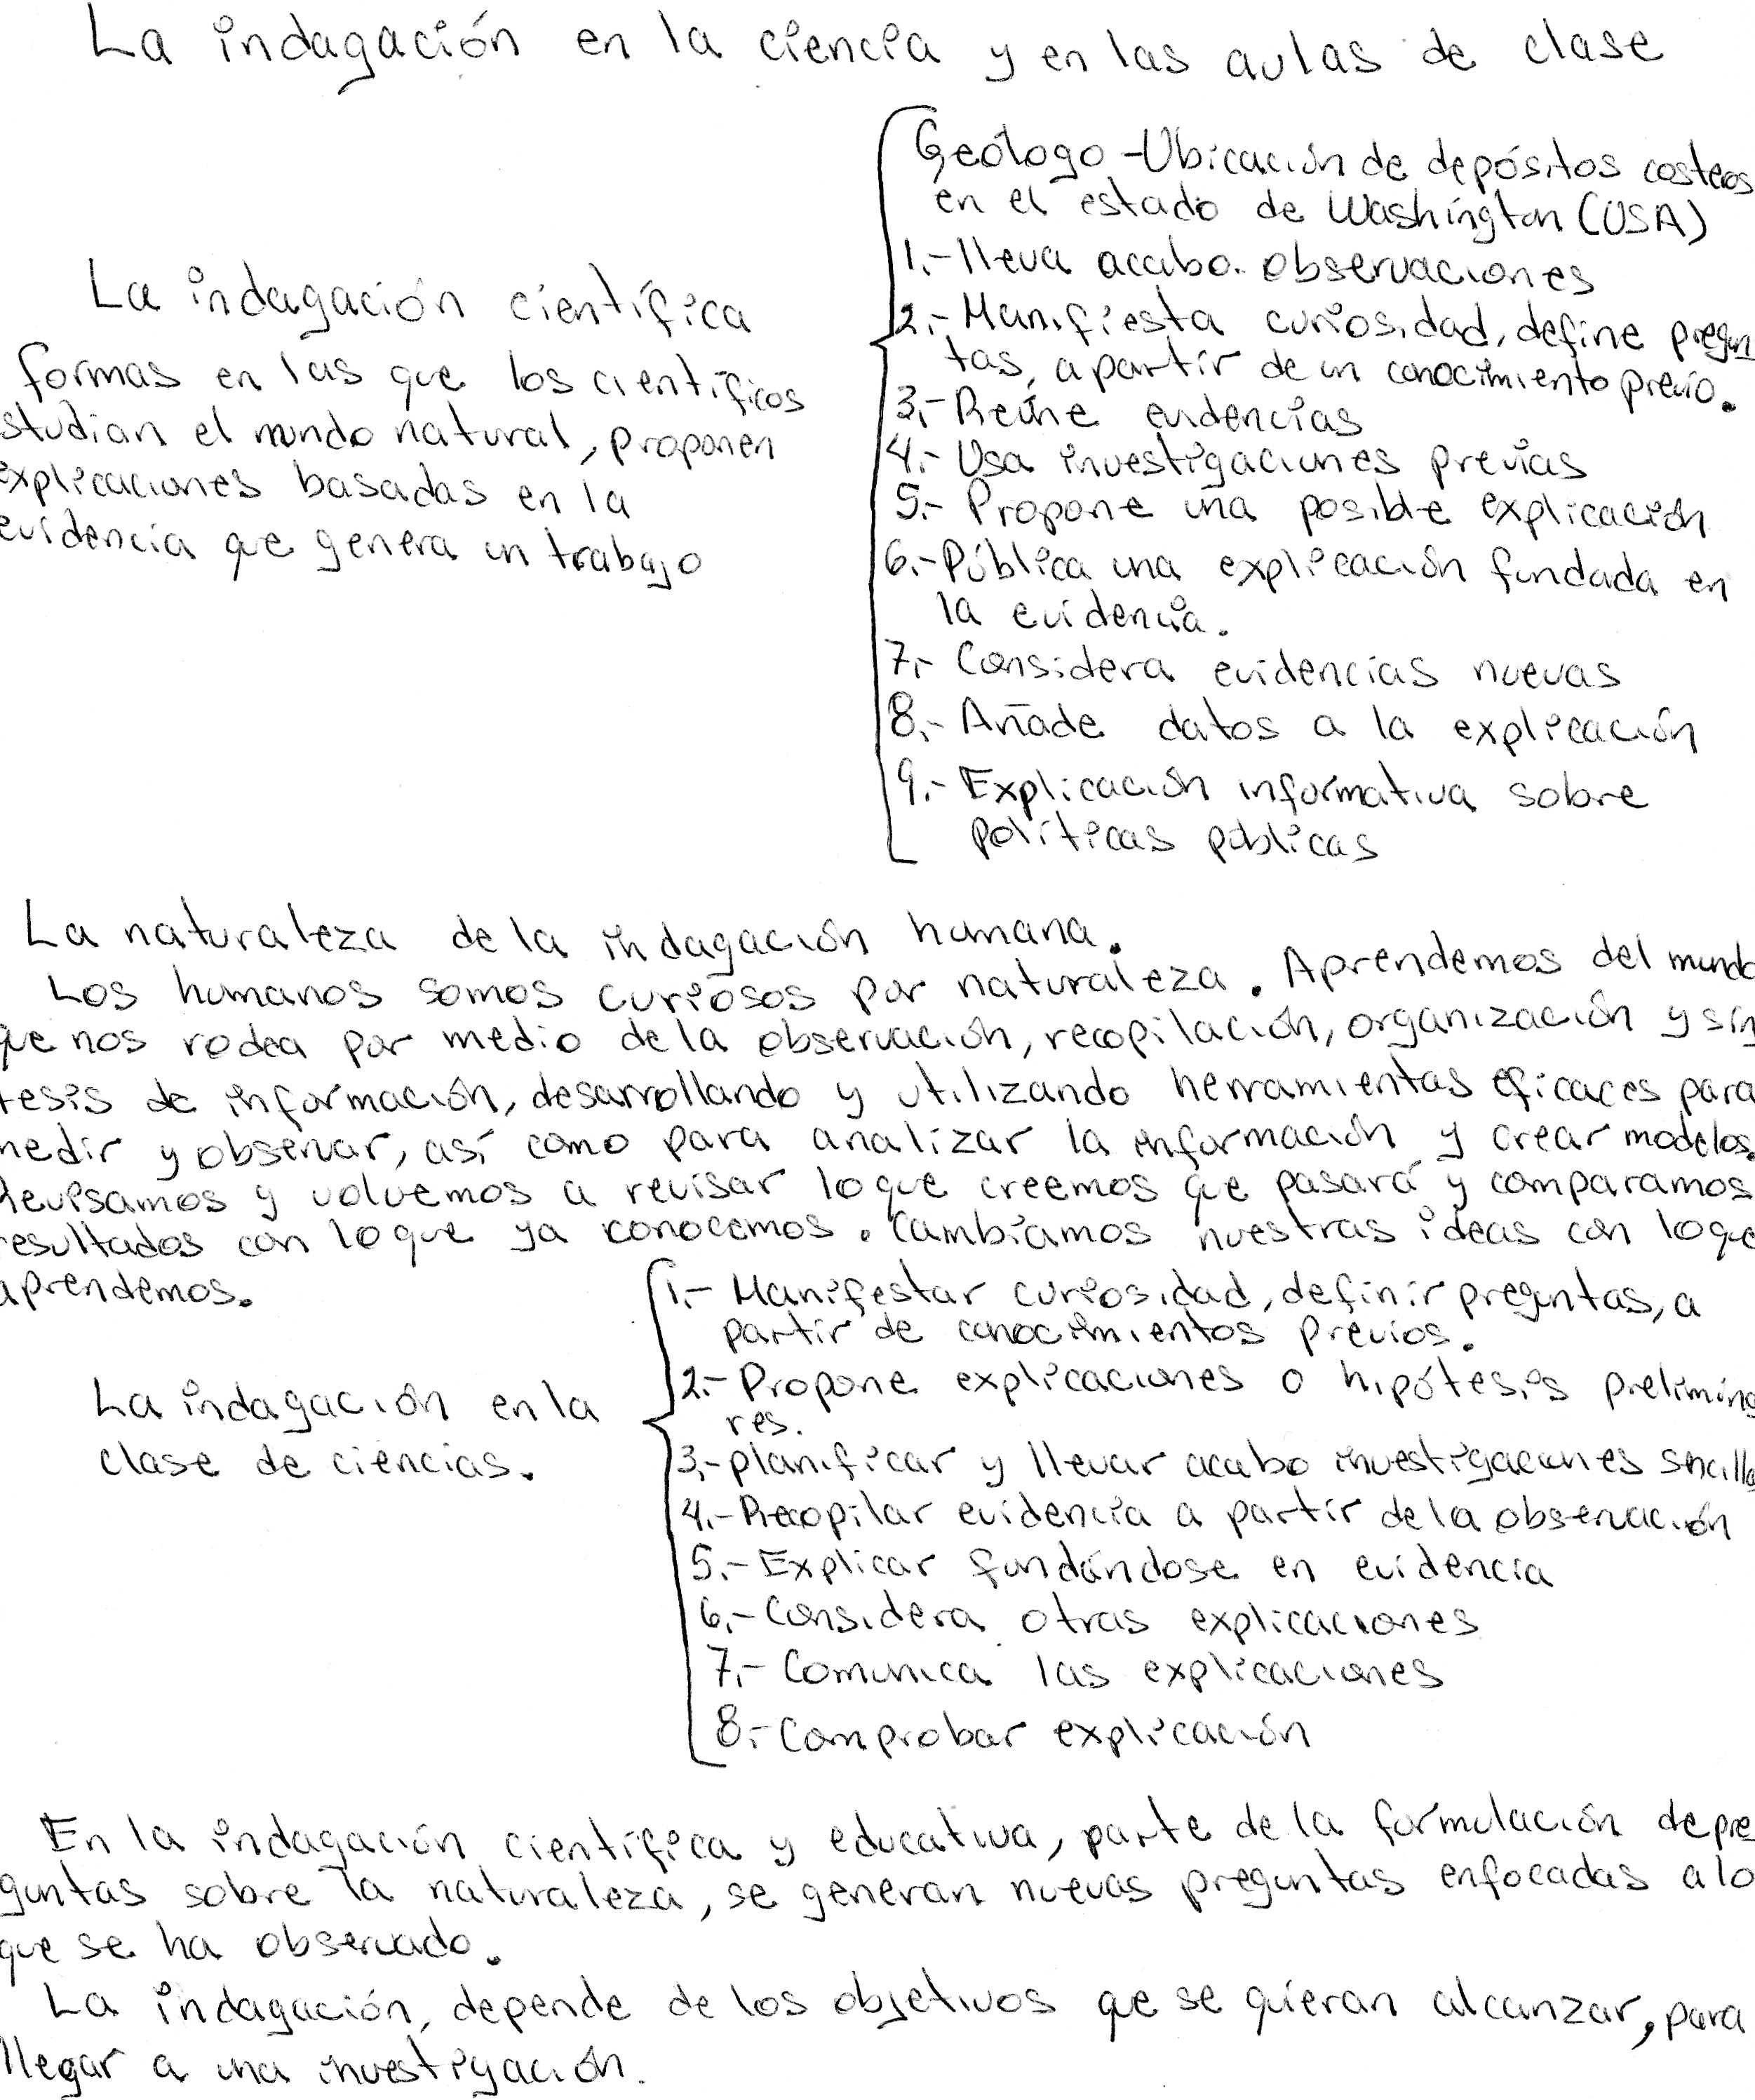 La indagación en la ciencia y en las aulas de clase
La indagación científica
formas en las que los científicos
studian el mundo natural, proponen
explicaciones basadas en la
evidencia que genera un trabajo
Geólogo - Ubicación de depósitos costeros
en el estado de Washington (USA)
1.- lleva acabo observaciones
2.- Manifiesta curiosidad, define pregun
tas, apartir de un conocimiento previo.
3.- Reúne evidencias
4.- Usa investigaciones previas
5.- Propone una posible explicación
6.- Pública una explicación fundada en
la evidencia.
7.- Considera evidencias nuevas
8.- Añade datos a la explicación
9.- Explicación informativa sobre
políticas públicas
La naturaleza de la indagación humana.
Los humanos somos curiosos por naturaleza. Aprendemos del mundo
que nos rodea por medio de la observación, recopilación, organización y sín
tesis de información, desarrollando y utilizando herramientas eficaces para
medir y observar, así como para analizar la información y crear modelos.
Revisamos y volvemos a revisar lo que creemos que pasará y comparamos
resultados con lo que ya conocemos. Cambiamos nuestras ideas con lo que
aprendemos.
La indagación en la
clase de ciencias.
1.- Manifestar curiosidad, definir preguntas, a
partir de conocimientos previos.
2.- Propone explicaciones o hipótesis prelimina
res.
3.- planificar y llevar acabo investigaciones sncilla
4.- Recopilar evidencia a partir de la observación
5.- Explicar fundándose en evidencia
6.- Considera otras explicaciones
7.- Comunica las explicaciones
8.- Comprobar explicación
En la indagación científica y educativa, parte de la formulación de pre
guntas sobre la naturaleza, se generan nuevas preguntas enfocadas a lo
que se ha observado.
La indagación, depende de los objetivos que se quieran alcanzar, para
llegar a una investigación.